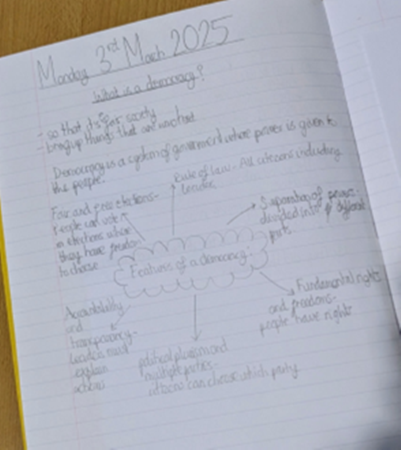 Monday 3rd March 2025
What is a democracy?
- so that it's fair society
- bring up things that are important
Democracy is a system of government where power is given to
the people.
Rule of law - All citizens including
leaders
Fair and free elections -
People can vote
in elections where
they have freedom
to choose
Separation of power -
divided into different
parts
Features of a democracy
Fundamental rights
and freedoms -
people have rights
Accountability
and
transparency -
leaders must
explain
actions
political pluralism and
multiple parties -
citizens can choose which party